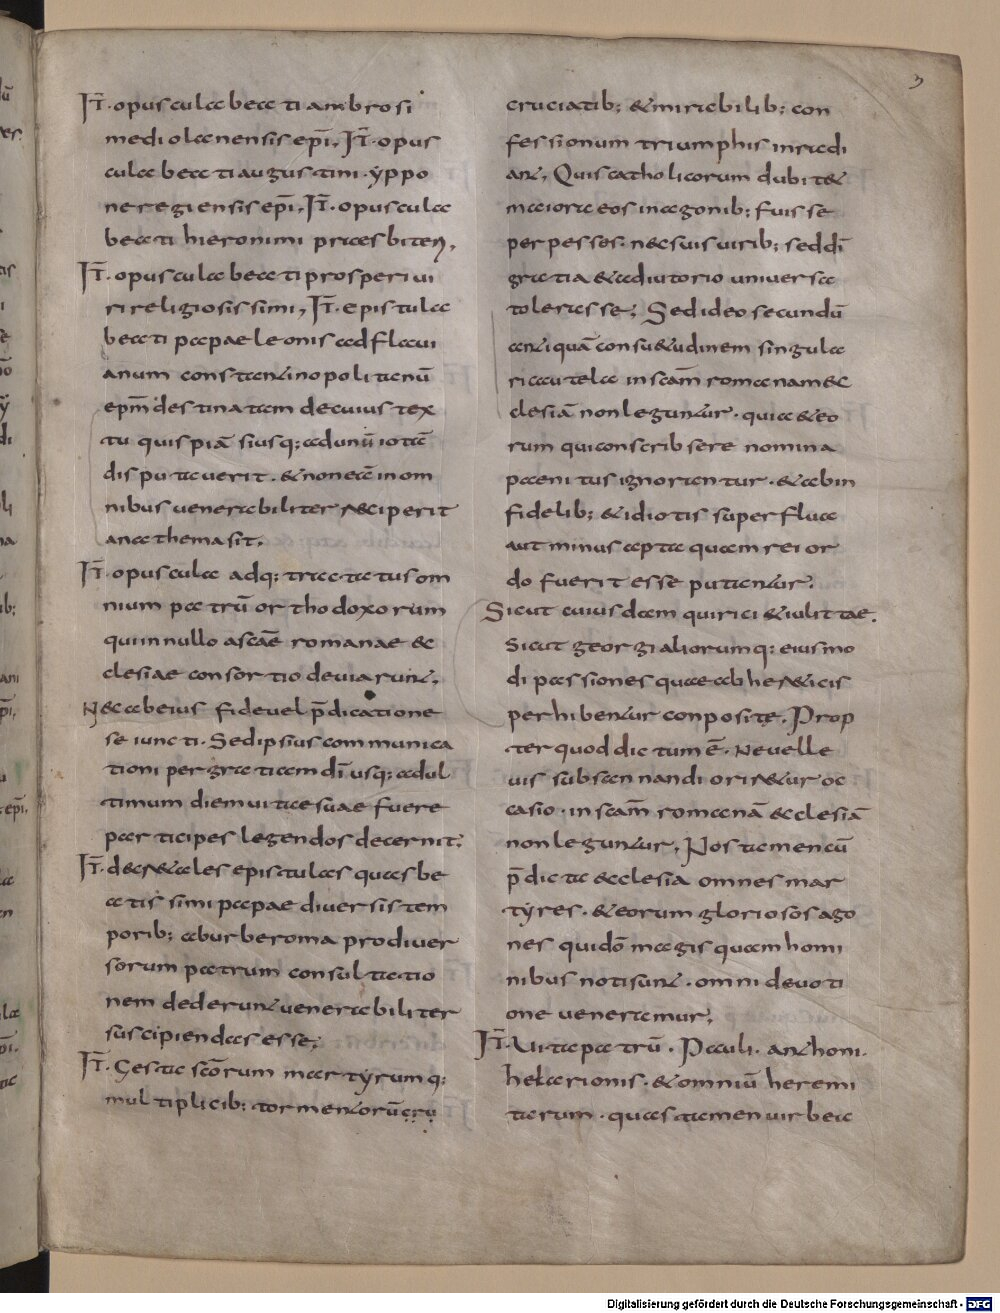 3
IT̄· opuscula beati ambrosi
mediolanensis epi͞, IT̄· opus
cula beati augustini· yppo
neregiensis epi͞, IT̄· opuscula
beati hieronimi praesbiteri,
IT̄· opuscula beati prosperi ui
ri religiosissimi, IT̄· epistula
beati papae leonis ad flaui
anum constantinopolitanū
epm̄ destinatam de cuius tex
tu quispiā siusq; ad unū iotā
disputauerit· & non eā in om
nibus uenerabiliter r&ciperit
anathema sit,
IT̄· opuscula adq; tractatus om
nium patrū orthodoxorum
qui in nullo a scāe romanae &c
clesiae consortio deuiarunt,
N&c ab eius fide uel p̄dicatione
seiuncti· Sed ipsius communica
tioni per gratiam dī usq; ad ul
timum diem uitae suae fuere
participes legendos decernit;
IT̄· d&cr&ales epistulas quas be
atissimi papae diuersis tem
porib; ab urbe roma pro diuer
sorum patrum consultatio
nem dederunt uenerabiliter
suscipiendas esse;
IT̄· Gesta scōrum martyrum q;
multiplicib; tormentorū cru
cruciatib; & mirabilib; con
fessionum triumphis inradi
ant, Quis catholicorum dubit&
maiora eos in agonib; fuisse
perpessos· nec suis uirib; sed dī
gratia & adiutorio uniuersa
tolerasse; Sed ideo secundū
antiquā consu&udinem singula
ri cautela in scām romanam &c
clesiā non leguntur· quia & eo
rum qui conscribsere nomina
paenitus ignorantur· & ab in
fidelib; & idiotis superflua
aut minus apta quam rei or
do fuerit esse putantur;
Sicut cuiusdam quirici & iulittae·
Sicut georgi aliorumq; eiusmo
di passiones quae ab her&icis
perhibentur conposite, Prop
ter quod dictum ē· Ne uel le
uis subsannandi orir&ur oc
casio· in scām romanā &cclesiā
non leguntur, Nos tamen cū
p̄dicta &cclesia omnes mar
tyres· & eorum gloriosos ago
nes qui dō magis quam homi
nibus noti sunt· omni deuoti
one ueneramur,
IT̄· Uitas patrū· Pauli· anthoni·
helarionis· & omniū heremi
tarum· quas tamen uir bea
Digitalisierung gefördert durch die Deutsche Forschungsgemeinschaft - DFG